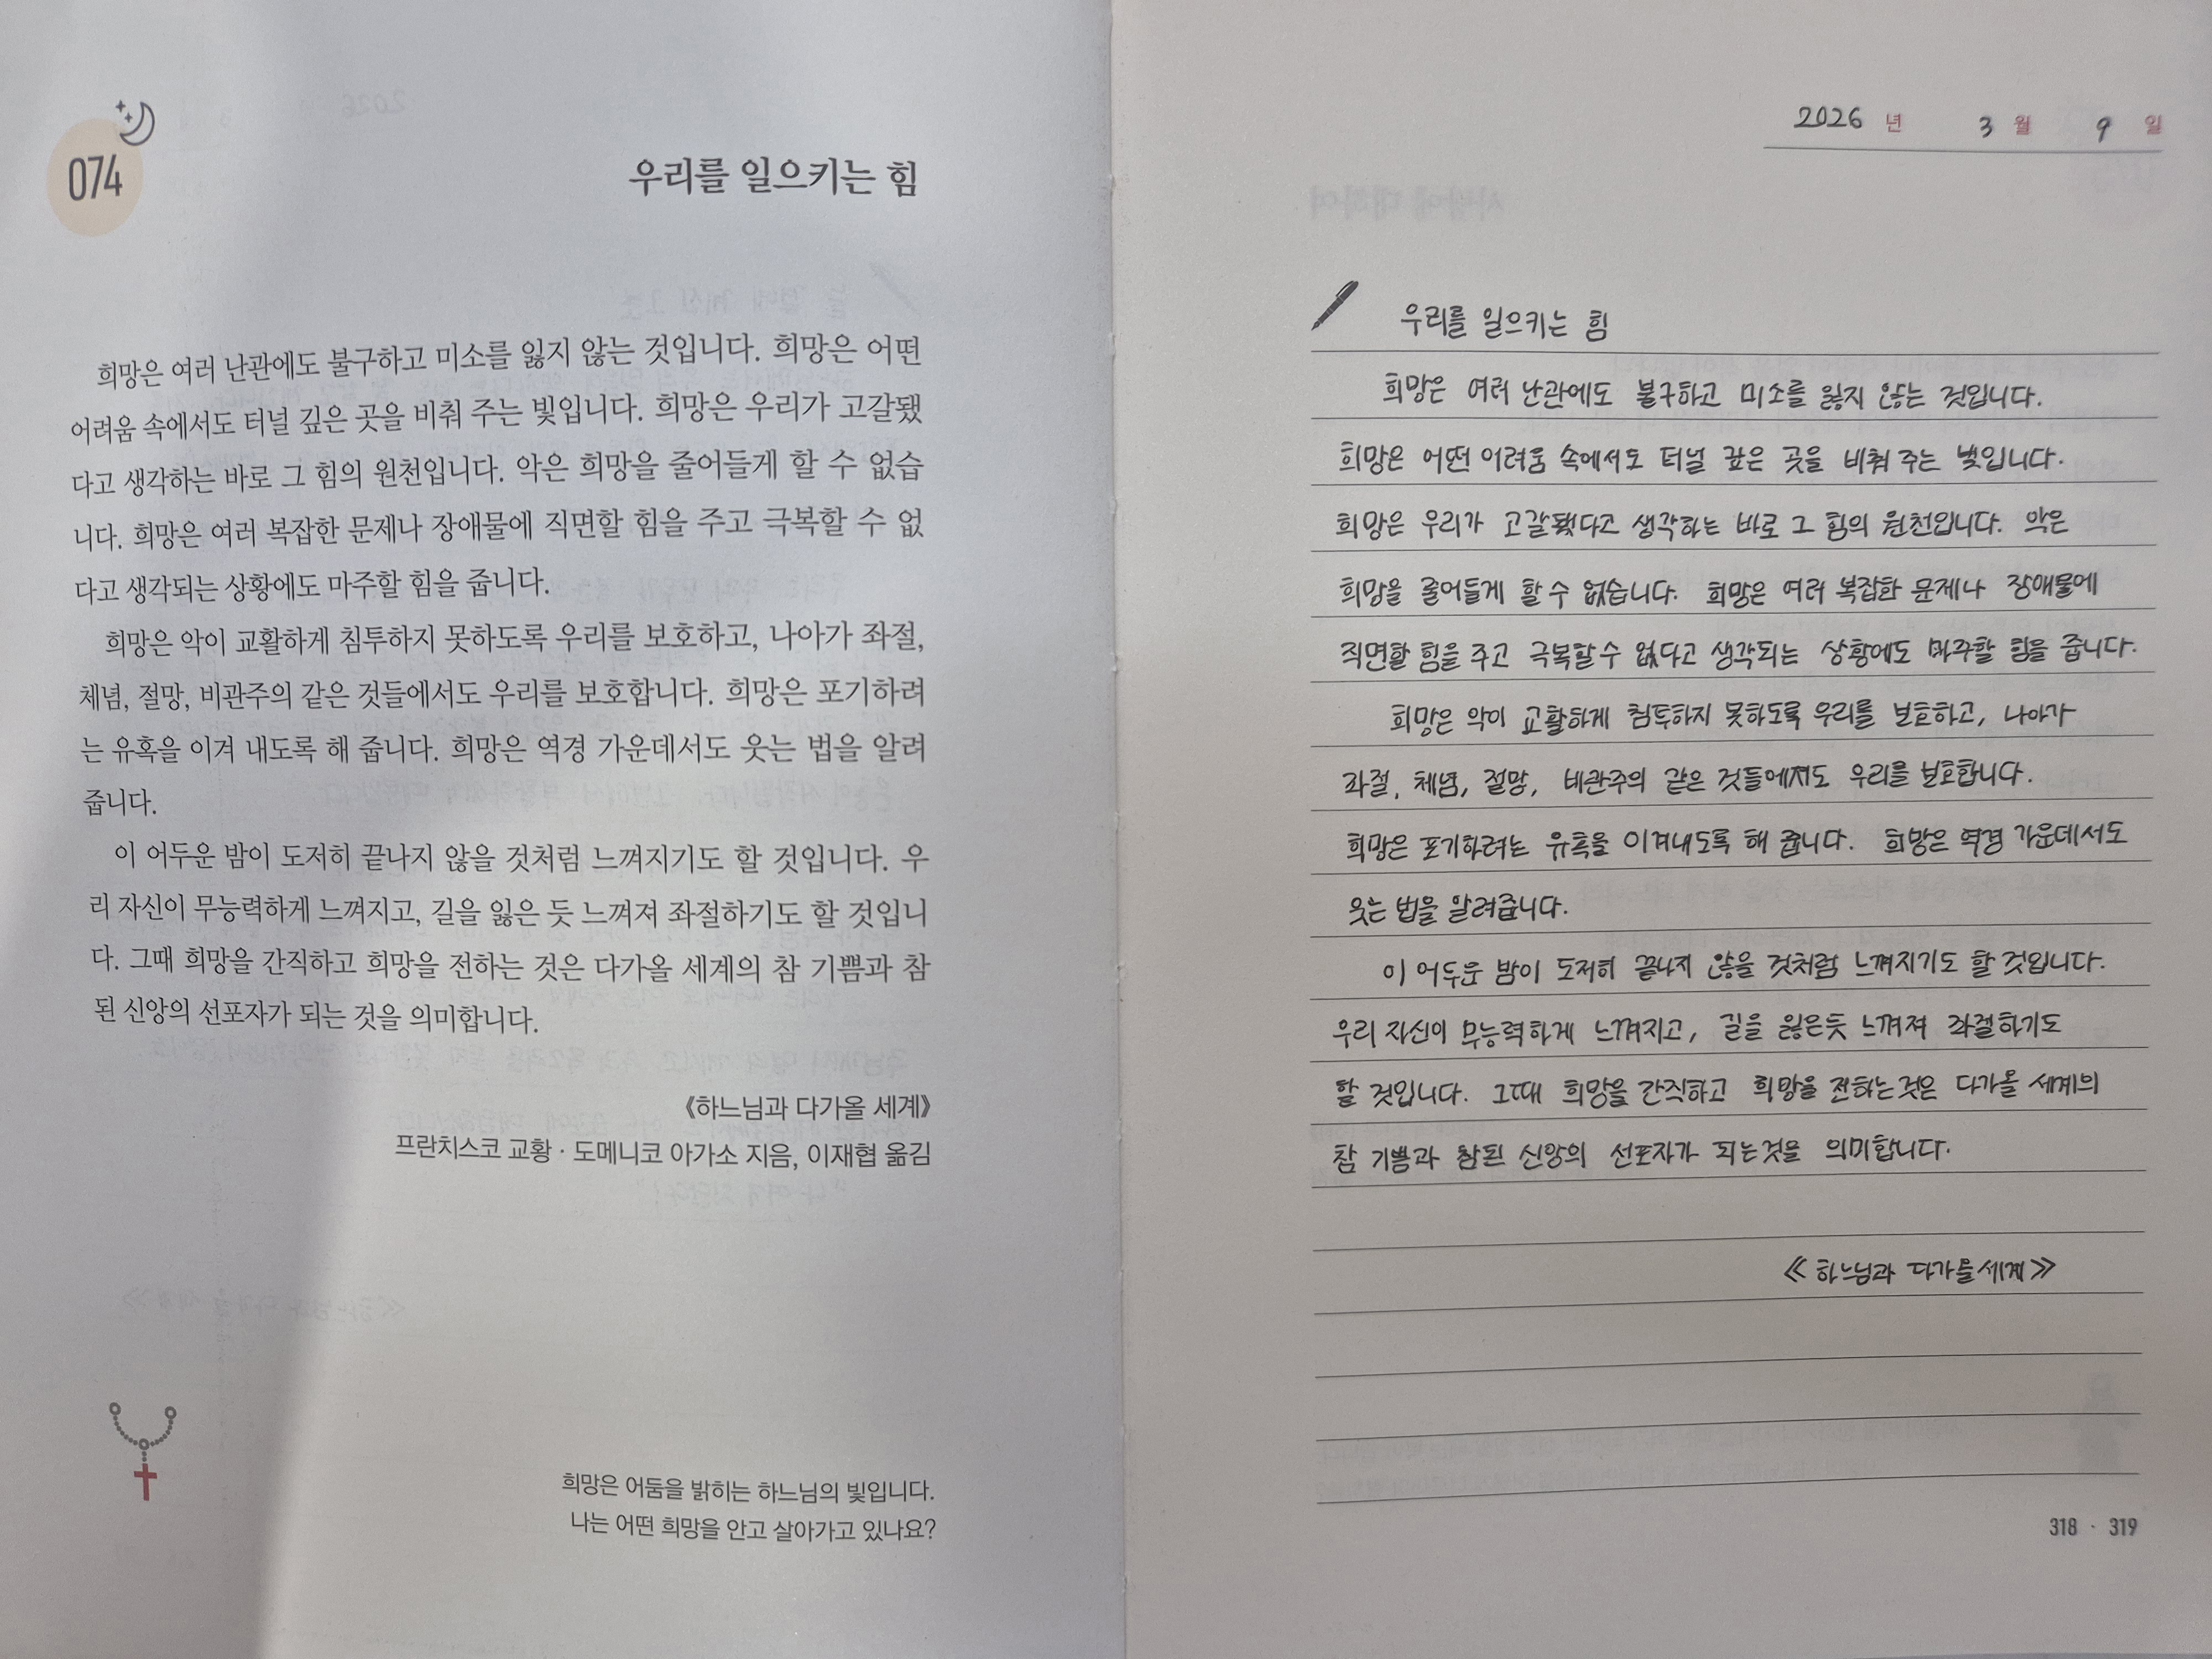 074
우리를 일으키는 힘
희망은 여러 난관에도 불구하고 미소를 잃지 않는 것입니다. 희망은 어떤
어려움 속에서도 터널 깊은 곳을 비춰 주는 빛입니다. 희망은 우리가 고갈됐
다고 생각하는 바로 그 힘의 원천입니다. 악은 희망을 줄어들게 할 수 없습
니다. 희망은 여러 복잡한 문제나 장애물에 직면할 힘을 주고 극복할 수 없
다고 생각되는 상황에도 마주할 힘을 줍니다.
희망은 악이 교활하게 침투하지 못하도록 우리를 보호하고, 나아가 좌절,
체념, 절망, 비관주의 같은 것들에서도 우리를 보호합니다. 희망은 포기하려
는 유혹을 이겨 내도록 해 줍니다. 희망은 역경 가운데서도 웃는 법을 알려
줍니다.
이 어두운 밤이 도저히 끝나지 않을 것처럼 느껴지기도 할 것입니다. 우
리 자신이 무능력하게 느껴지고, 길을 잃은 듯 느껴져 좌절하기도 할 것입니
다. 그때 희망을 간직하고 희망을 전하는 것은 다가올 세계의 참 기쁨과 참
된 신앙의 선포자가 되는 것을 의미합니다.
《하느님과 다가올 세계》
프란치스코 교황 · 도메니코 아가소 지음, 이재협 옮김
희망은 어둠을 밝히는 하느님의 빛입니다.
나는 어떤 희망을 안고 살아가고 있나요?
2026 년 3 월 9 일
우리를 일으키는 힘
희망은 여러 난관에도 불구하고 미소를 잃지 않는 것입니다.
희망은 어떤 어려움 속에서도 터널 깊은 곳을 비춰 주는 빛입니다.
희망은 우리가 고갈됐다고 생각하는 바로 그 힘의 원천입니다. 악은
희망을 줄어들게 할 수 없습니다. 희망은 여러 복잡한 문제나 장애물에
직면할 힘을 주고 극복할 수 없다고 생각되는 상황에도 마주할 힘을 줍니다.
희망은 악이 교활하게 침투하지 못하도록 우리를 보호하고, 나아가
좌절, 체념, 절망, 비관주의 같은 것들에서도 우리를 보호합니다.
희망은 포기하려는 유혹을 이겨내도록 해 줍니다. 희망은 역경 가운데서도
웃는 법을 알려줍니다.
이 어두운 밤이 도저히 끝나지 않을 것처럼 느껴지기도 할 것입니다.
우리 자신이 무능력하게 느껴지고, 길을 잃은듯 느껴져 좌절하기도
할 것입니다. 그때 희망을 간직하고 희망을 전하는것은 다가올 세계의
참 기쁨과 참된 신앙의 선포자가 되는것을 의미합니다.
《하느님과 다가올 세계》
318 · 319